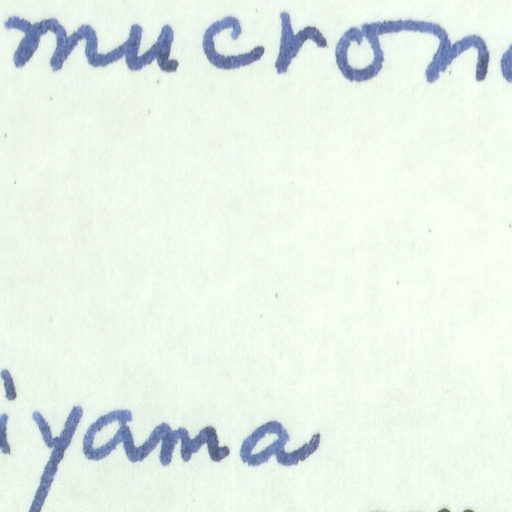 mucron
iyama